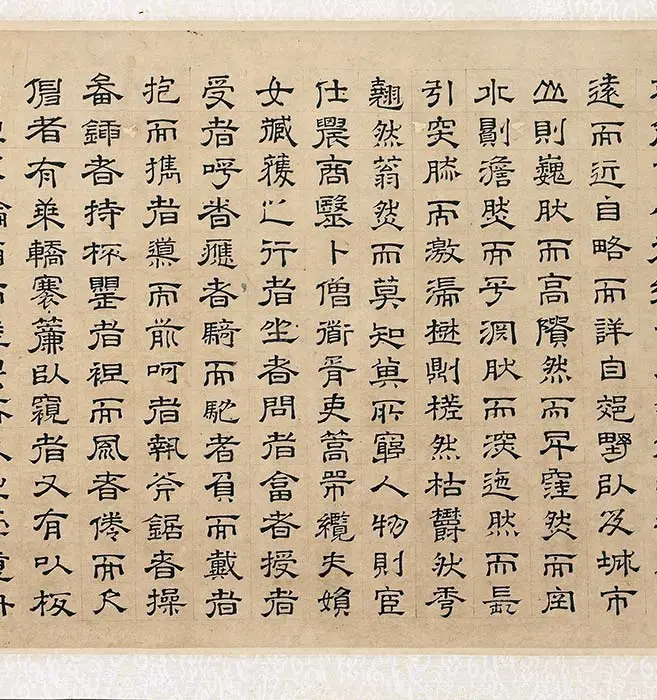 遠而近自略而詳自郊野以及城市
山則巍然而高隤然而卑窪然而空
水則澹然而平淵然而深迤然而長
引突然而激湍樹則槎然枯鬱然秀
翹然蓊然而莫知其所窮人物則官
仕農商醫卜僧道胥吏篙帥纜夫婦
女臧獲之行者坐者問者答者授者
受者呼者應者騎而馳者負而戴者
抱而攜者導而前呵者執斧鋸者操
畚鍤者持杯罌者袒而風者倦而
者有乘轎褰簾以窺者又有以板